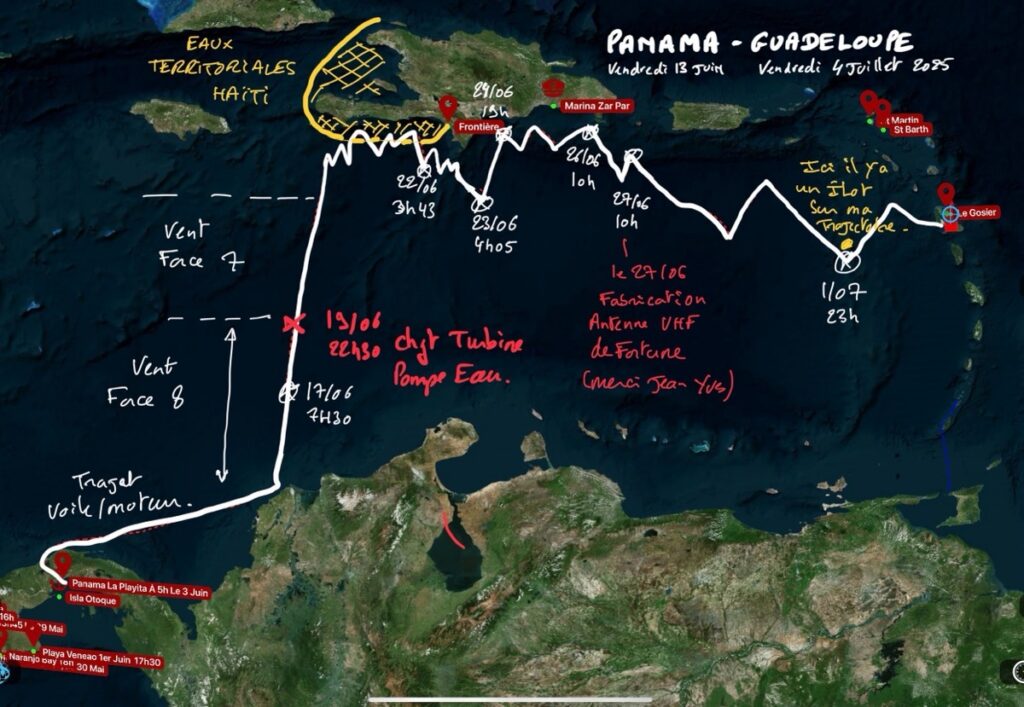 PANAMA - GUADELOUPE
Vendredi 13 Juin Vendredi 4 Juillet 2025
EAUX
TERRITORIALES
HAÏTI
Frontière
29/06
19h
Marina Zar Par
St Martin
St Barth
22/06
3h43
23/06
4h05
26/06
10h
27/06
10h
Ici il y a
un Îlot
sur ma
Trajectoire.
Le Gosier
1/07
23h
Vent
Face 7
le 27/06
Fabrication
Antenne VHF
de Fortune
(merci Jean Yves)
19/06
22H30
chgt Turbine
Pompe Eau.
Vent
Face 8
17/06
7H30
Trajet
voile/moteur.
Panama La Playita A 5h Le 3 Juin
Isla Otoque
16h
9 Mai
Playa Veneao 1er Juin 17h30
Naranjo Bay 16h 30 Mai